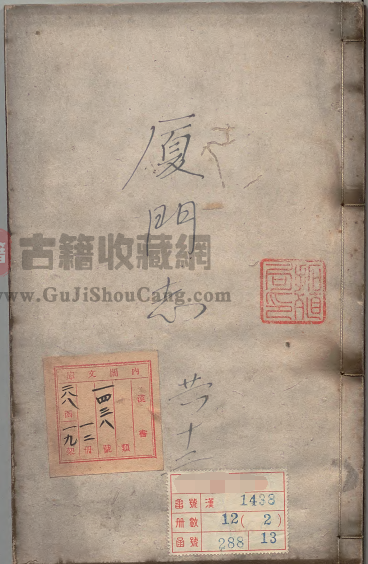 厦門志
共十二
古籍收藏網
www.GuJiShouCang.com
拓殖局印
內閣文庫
漢書
一四三八號
一二冊
番號 漢 1438
冊數 12(2)
函號 288 13